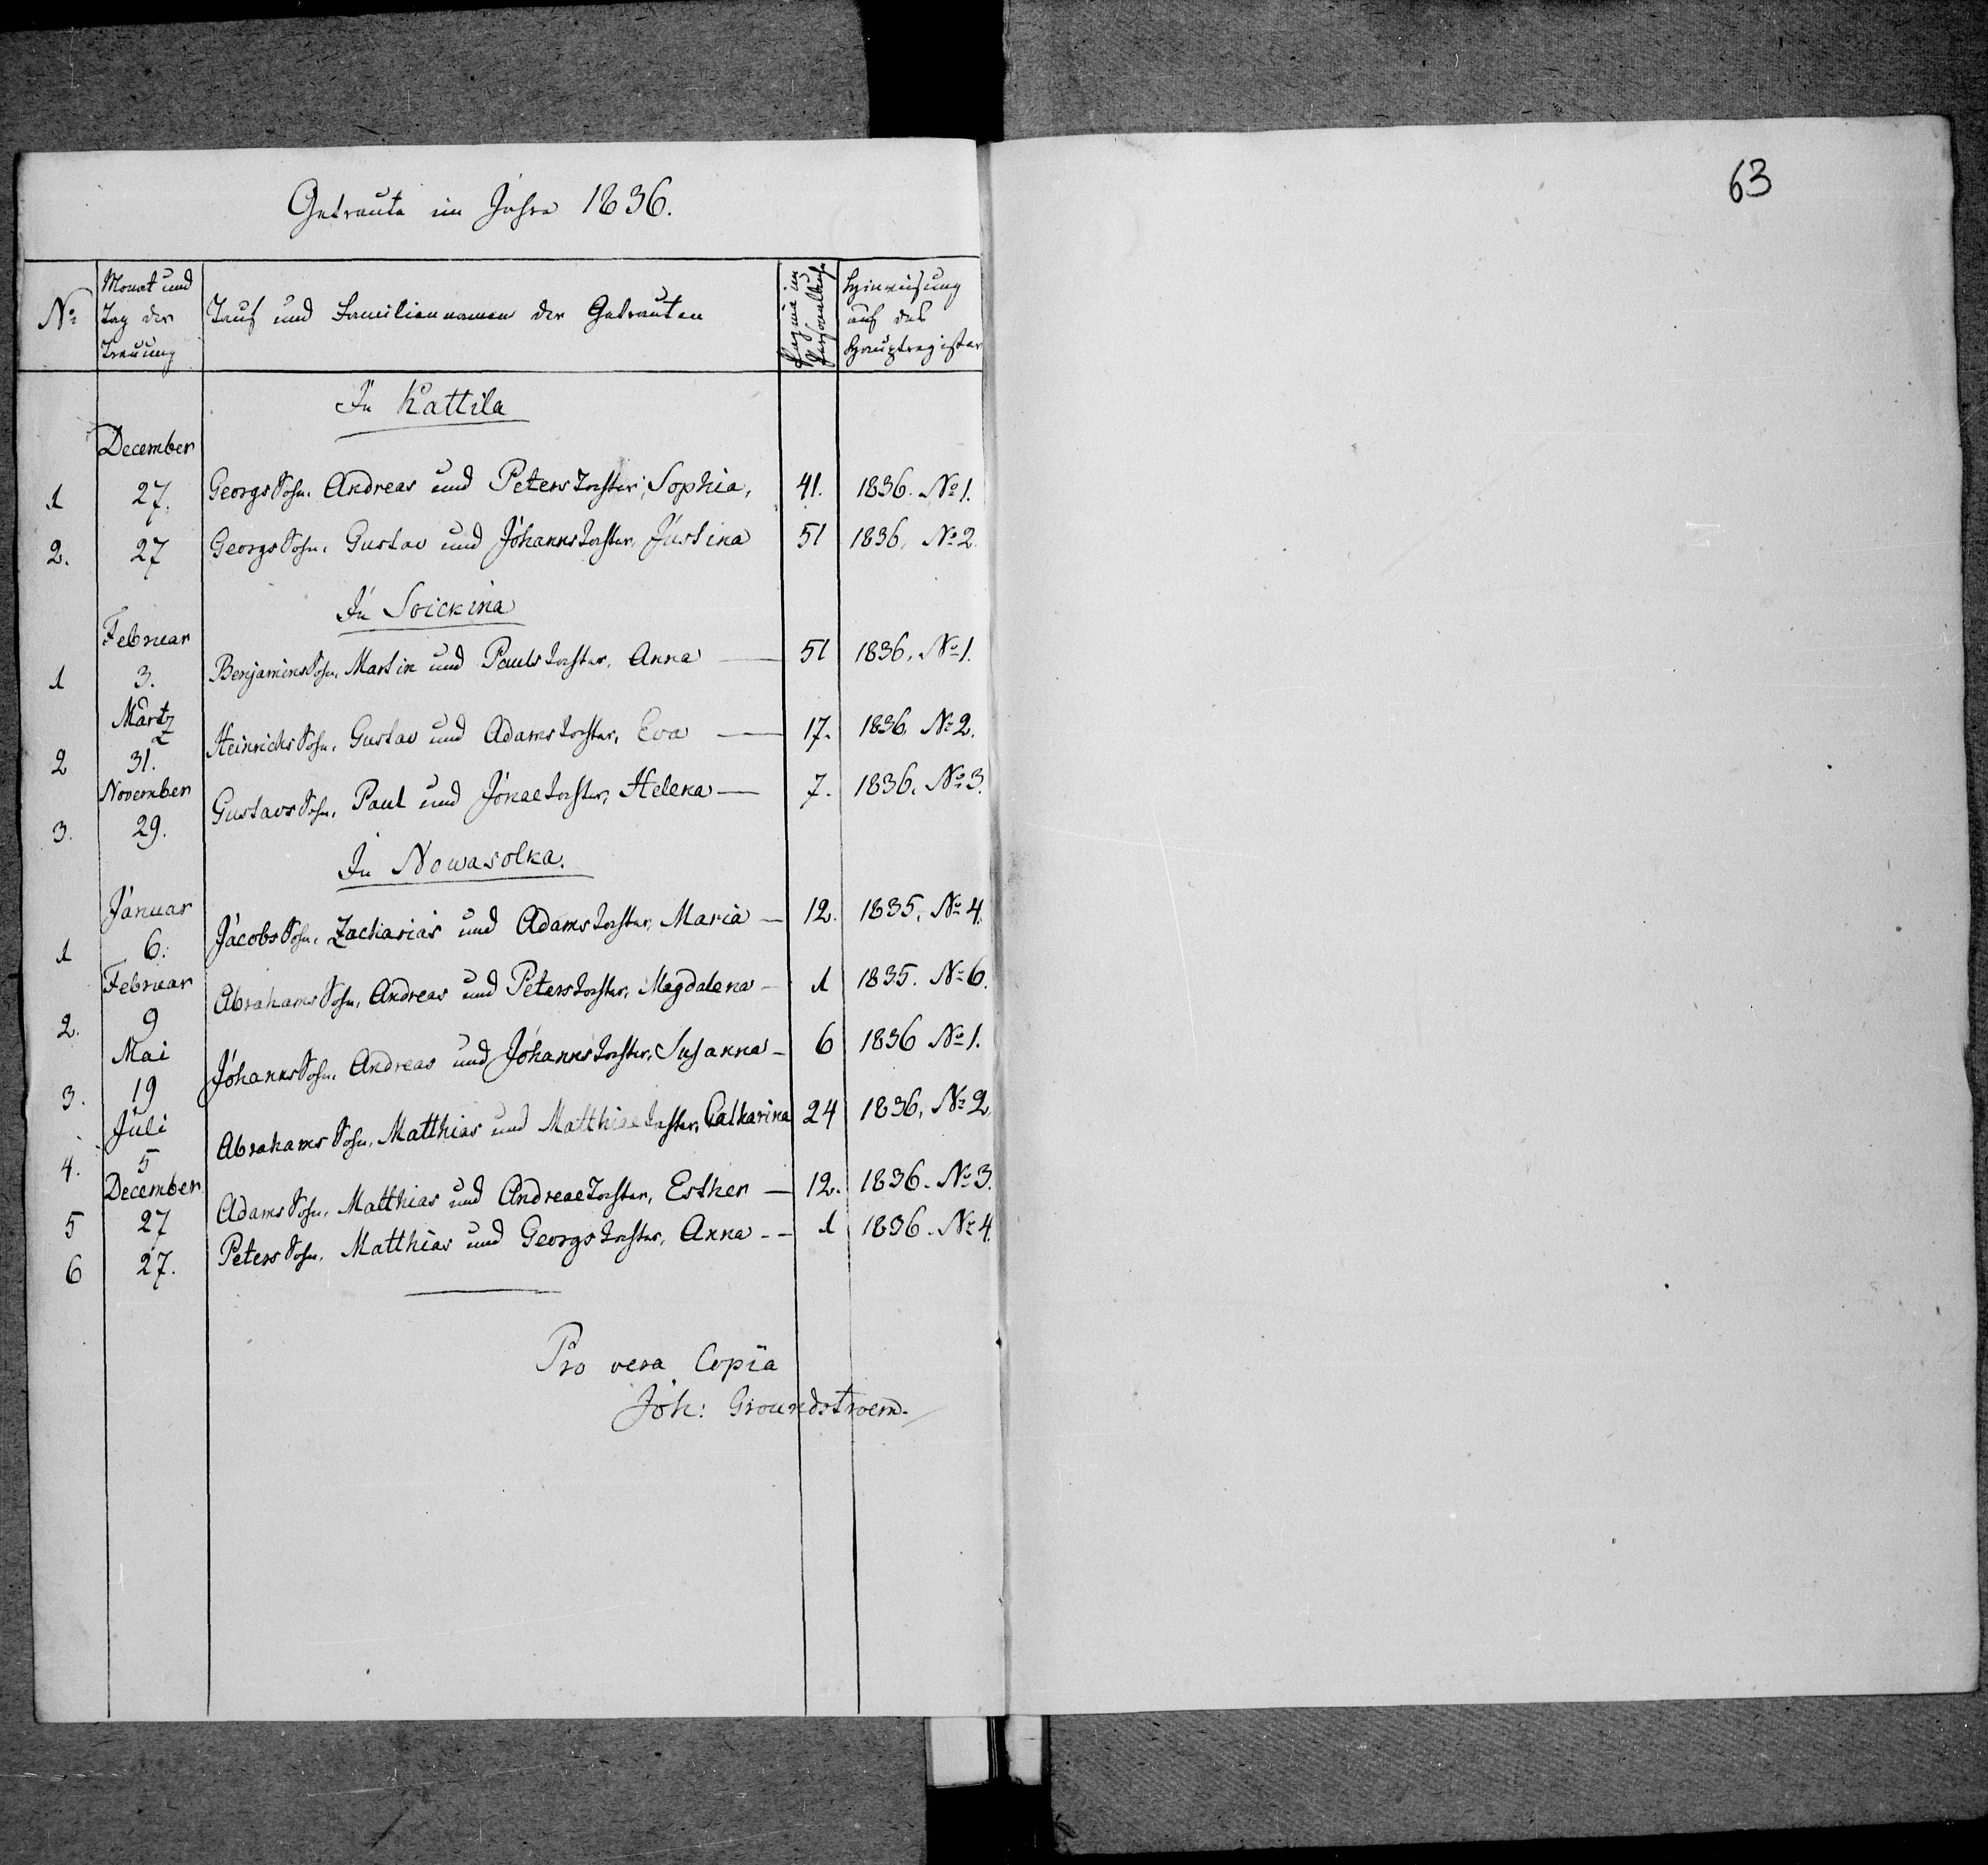 63
Getraute im Jahre 1836.
Nº
Monat und
Tag der
Trauung
Tauf und Familiennamen der Getrauten
Pagina im
Personalbuche
Hinweisung
auf das
Hauptregister
In Kattila
December
1 27. Georgs Sohn. Andreas und Peters Tochter, Sophia. 41. 1836. Nº 1.
2. 27 Georgs Sohn. Gustav und Johanns Tochter, Justina 51 1836. Nº 2.
In Soickina
Februar
1 3. Benjamins Sohn. Martin und Pauls Tochter. Anna — 51 1836. Nº 1.
Märtz
2 31. Heinrichs Sohn. Gustav und Adams Tochter, Eva — 17. 1836. Nº 2.
November
3. 29. Gustavs Sohn. Paul und Jonae Tochter, Helena — 7. 1836. Nº 3.
In Nowasolka.
Januar
1 6. Jacobs Sohn. Zacharias und Adams Tochter, Maria — 12. 1835. Nº 4.
Februar
2. 9 Abrahams Sohn. Andreas und Peters Tochter. Magdalena — 1 1835. Nº 6.
Mai
3. 19 Johanns Sohn. Andreas und Johanns Tochter. Susanna — 6 1836 Nº 1.
Juli
4. 5 Abrahams Sohn. Matthias und Matthiae Tochter, Catharina 24 1836. Nº 2.
December
5 27 Adams Sohn. Matthias und Andreae Tochter, Esther — 12. 1836. Nº 3.
6 27. Peters Sohn. Matthias und Georgs Tochter, Anna — 1 1836. Nº 4.
Pro vera Copia
Joh: Groundstroem.